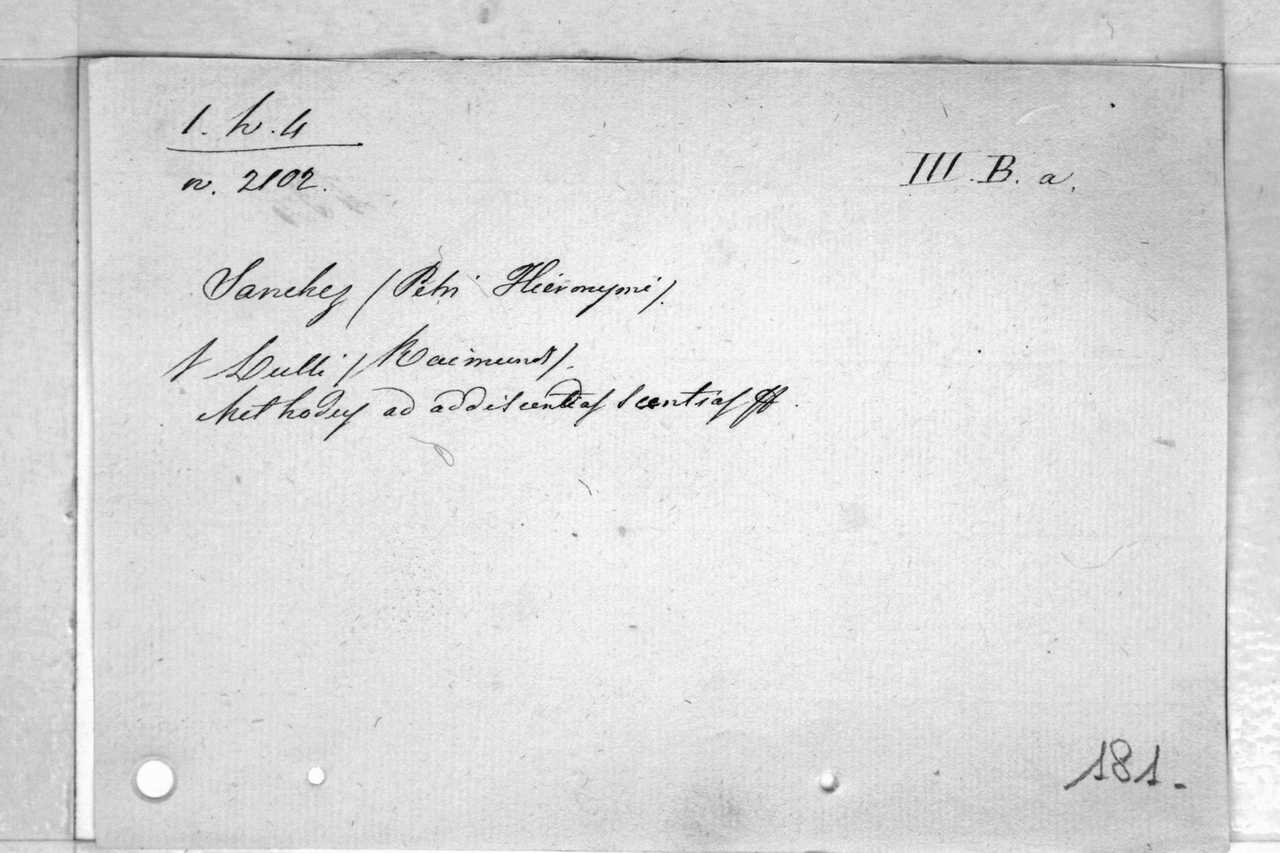 1. h. 4
n. 2102.
III. B. a.
Sanchez /Petri Hieronymi/.
Lulli /Raimundi/.
Methodus ad addiscentias scentias
181.